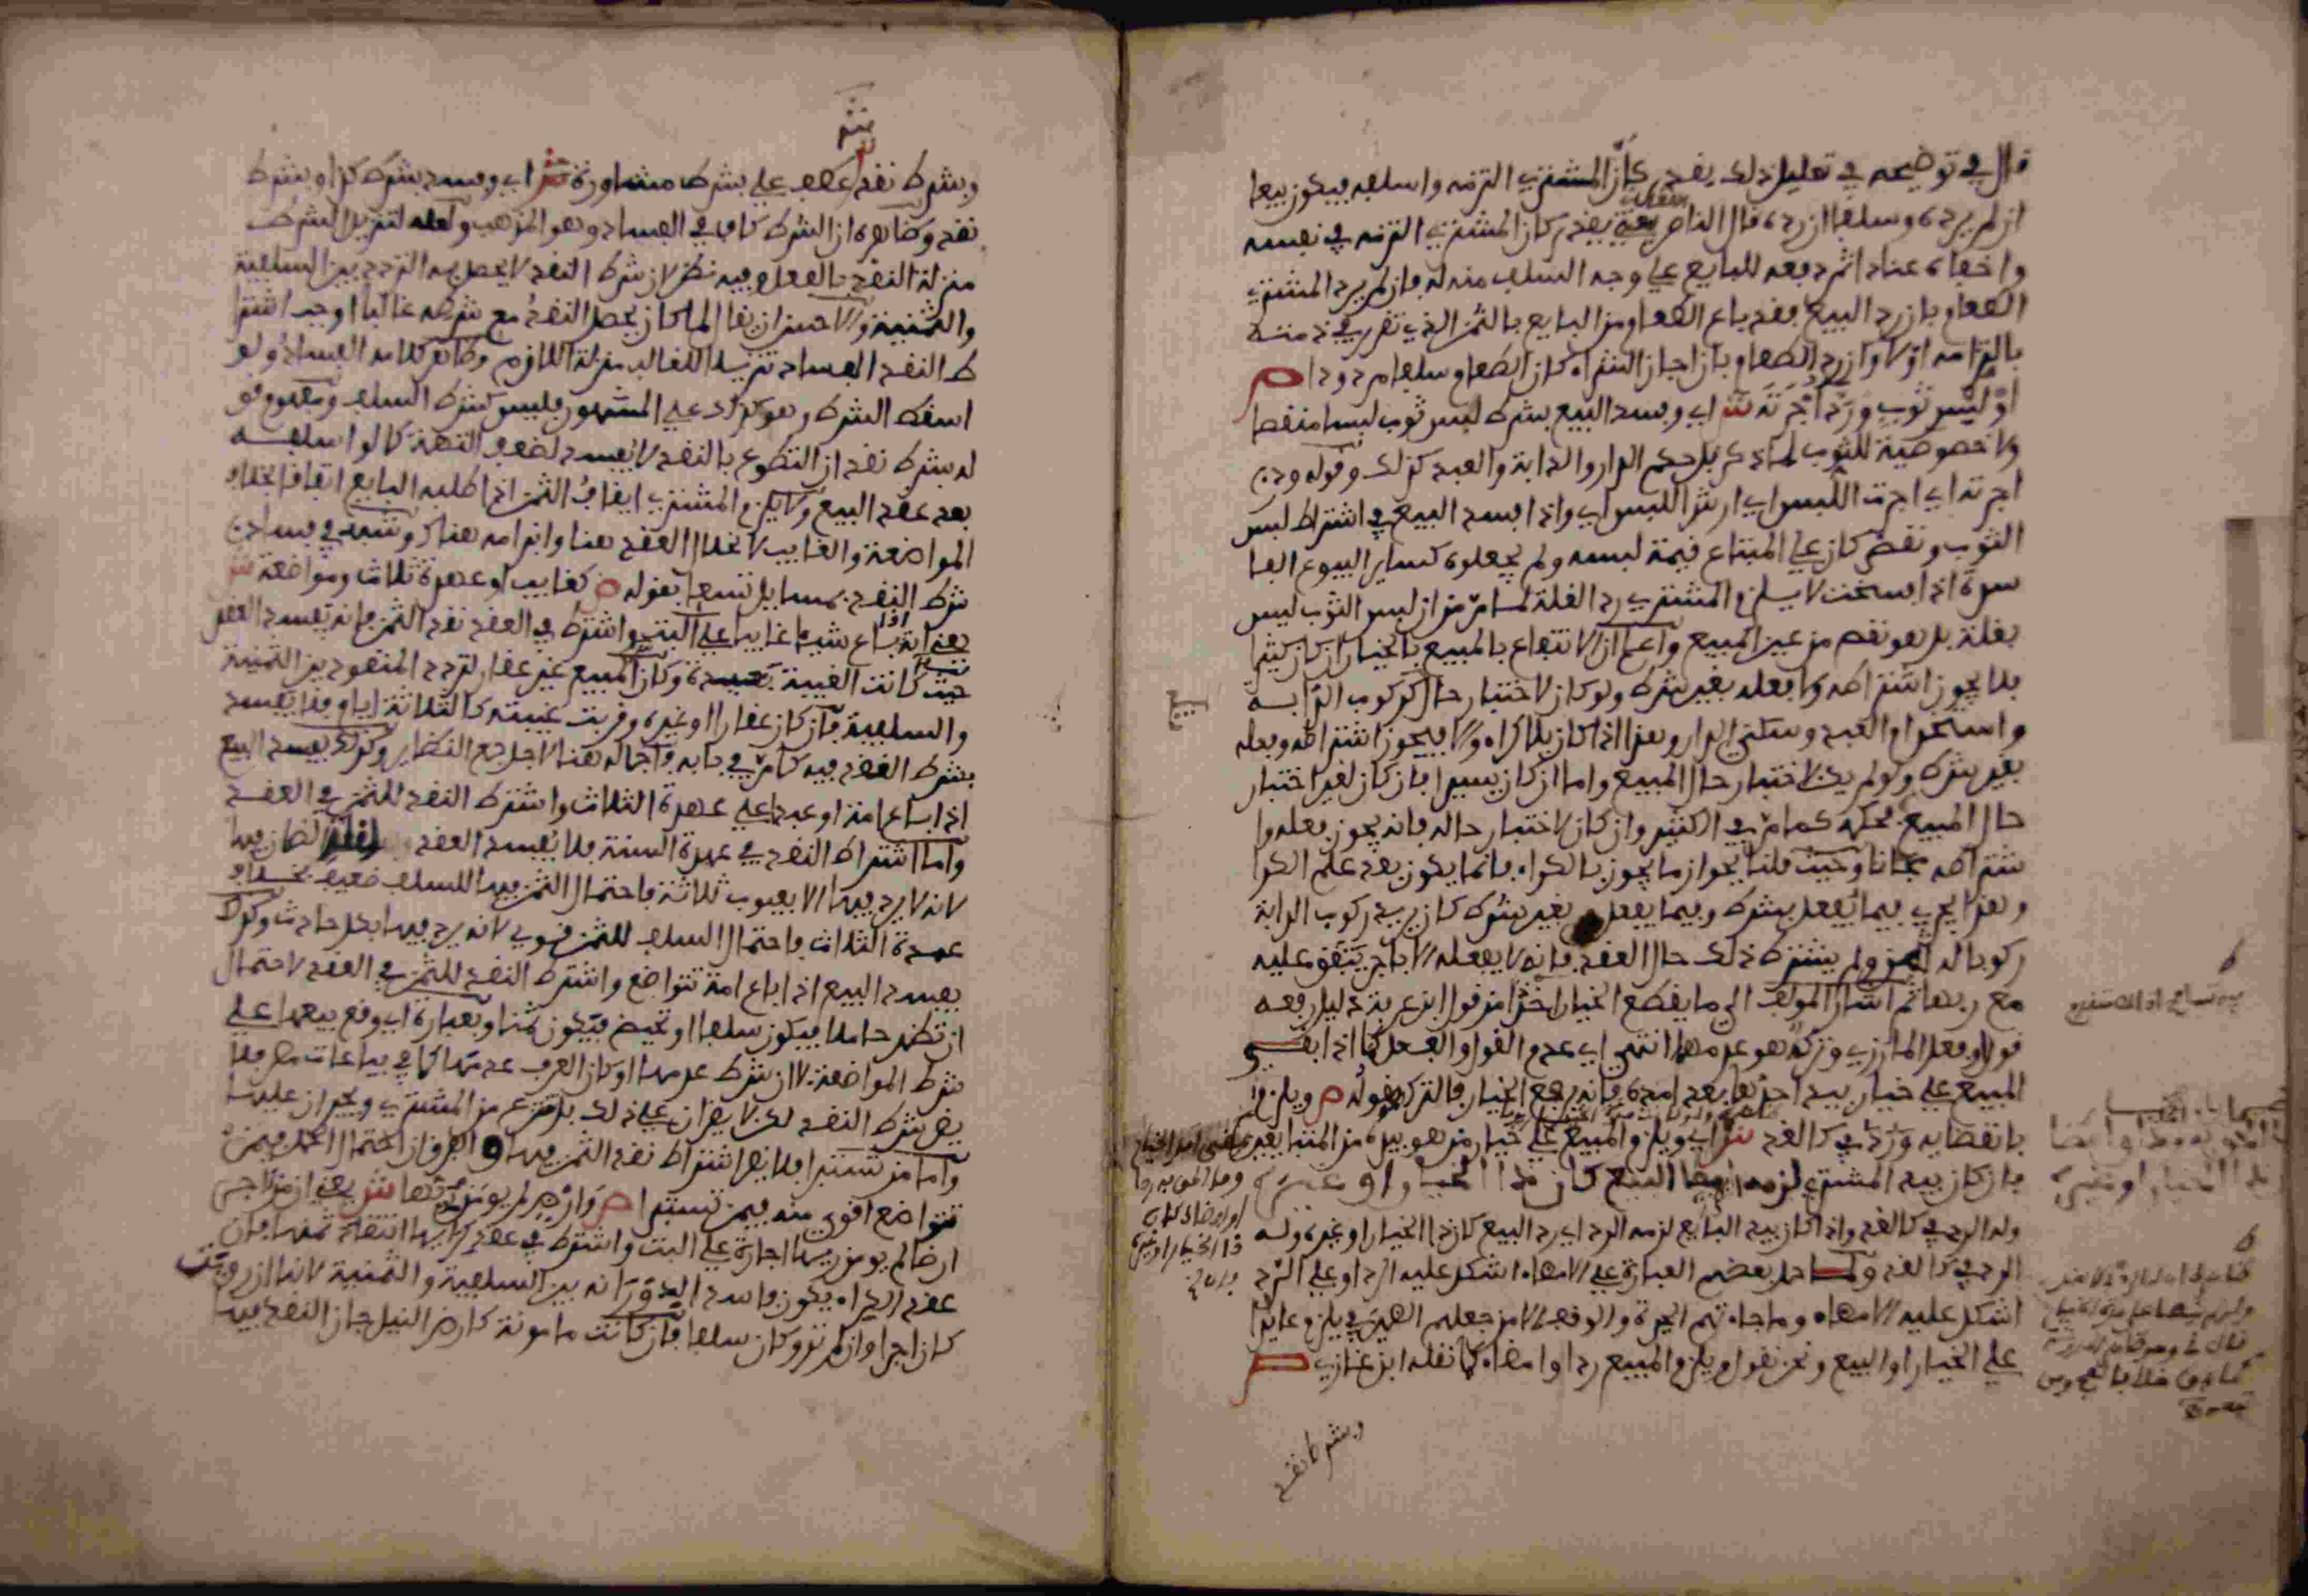 قال في توضيحه في تعليل ذلك يقدر كأن المشتري التزمه واسلفه فيكون بيعا
ان لم يرده وسلفا ان رده قال الناصر اللقاني يعني يقدر كان المشتري التزمه في نفسه
واخفاه عنده ثم دفعه للبايع على وجه السلف منه له فان لم يرد المشتري
الطعام بان رد البيع فقد باع الطعام من البايع بالثمن الذي تقرر في ذمته
بالتزامه اولا وان رد الطعام بان اجاز الشراء كان الطعام سلفا مردودا ص
او لبس ثوب ورد اجرته ش اي وفسد البيع بشرط لبس ثوب لبسا منقصا
ولا خصوصية للثوب لما ذكر بل حكم الدار والدابة والعبد كذلك وقوله ورد
اجرته اي اجرت اللبس اي ارش اللبس اي واذا فسد البيع في اشتراط لبس
الثوب ونقض كان على المبتاع قيمة لبسه ولم يجعلوه كساير البيوع الفا
سدة اذا فسخت لا يلزم المشتري رد الغلة لما مر من ان لبس الثوب ليس
بغلة بل هو نقص من عين المبيع واعلم ان الانتفاع بالمبيع بالخيار ان كان كثيرا
فلا يجوز اشتراطه ولا فعله بغير شرط ولو كان لاختبار حال كركوب الدابة
واستخدام العبد وسكنى الدار وهذا اذا كان بلا كراء والا فيجوز اشتراطه وفعله
بغير شرط ولو لم يكن لاختبار حال المبيع واما ان كان يسيرا فان كان لغير اختبار
حال المبيع فحكمه كما مر في الكثير وان كان لاختبار حاله فانه يجوز فعله وا
شتراطه مجانا وحيث قلنا بجواز ما يجوز بالكراء فانما يكون بعد علم الكرا
وهذا يجري فيما يفعل بشرط وفيما يفعل بغير شرط كان يريد ركوب الدابة
ركوبا له ثمن ولم يشترط ذلك حال العقد فانه لا يفعله الا باجر يتفق عليه
مع ربها ثم اشار المولف الى ما يقطع الخيار اخذا من قول ابن عرفة دليل رفعه
قول وفعل المازري وتركه هو عدمهما انتهى اي عدم القول والفعل كما اذا بقي
المبيع على خيار بيد احدهما بعد امده فانه يرفع الخيار فالترك هو قوله ص ويلزم
بانقضايه ورد في كالغد ش اي ويلزم المبيع على خيار من هو بيده من المتبايعين
فان كان بيد المشتري لزمه امضا البيع كان ذا الخيار او غيره
وله الرد في كالغد واذا كان بيد البايع لزمه الرد اي رد البيع كان ذا الخيار او غيره وله
الرد في كالغد ولما حمل بعضهم العبارة على الامضاء اشكل عليه الرد او على الرد
اشكل عليه الامضاء وما جاءتهم الحيرة والوقفة الا من جعلهم الضمير في يلزم عايدا
على الخيار او البيع ونحن نقول ويلزم المبيع ردا وامضاء كما نقله ابن غازي ص
وشرط نقد
وبشرط نقد عطف على بشرط مشاورة ش اي وفسد بشرط كذا وبشرط
نقد وظاهره ان الشرط كاف في الفساد وهو المذهب ولعله لتنزيل الشرط
منزلة النقد بالفعل وفيه نظر لان شرط النقد لا يحصل به التردد بين السلفية
والثمنية والاحسن ان يقال لما كان يحصل النقد مع شرطه غالبا اوجب اشترا
ط النقد الفساد تنزيلا للغالب منزلة اللازم وظاهر كلامه الفساد ولو
اسقط الشرط وهو كذلك على المشهور فليس كشرط السلف ومفهوم قو
له بشرط نقد ان التطوع بالنقد لا يفسد لضعف التهمة كما لو اسلفه
بعد عقد البيع ولا يلزم المشتري ايقاف الثمن اذا طلبه البايع اتفاقا بخلاف
المواضعة والغايب لانحلال العقد هنا وانبرامه هناك وشبه في فساده
شرط النقد بمسايل تسعة بقوله ص كغايب او عهدة ثلاث ومواضعة ش
يعني انه اذا باع شيئا غايبا على البت واشترط في العقد نقد الثمن فانه يفسد العقد
حيث كانت الغيبة بعيدة وكان المبيع غير عقار لتردد المنقود بين الثمنية
والسلفية فان كان عقارا او غيره وقربت غيبته كالثلاثة ايام فلا يفسد
بشرط النقد فيه كما مر في بابه واجماله هنا لاجل جمع النظاير وكذلك يفسد البيع
اذا باع امة او عبدا على عهدة الثلاث واشترط النقد للثمن في العقد
واما اشتراط النقد في عهدة السنة فلا يفسد العقد لقلة الضمان فيها
لانه لا يرد فيها الا بعيوب ثلاثة فاحتمال الثمن فيها للسلف ضعيف بخلاف
عهدة الثلاث فاحتمال السلف للثمن قوي لانه يرد فيها بكل حادث وكذلك
يفسد البيع اذا باع امة تتواضع واشترط النقد للثمن في العقد لاحتمال
ان تظهر حاملا فيكون سلفا او تحيض فيكون ثمنا وبعبارة اي وقع بيعها على
شرط المواضعة لا ان شرط عدمها او كان العرف عدمها كما في بياعات مصر فلا
يضر شرط النقد لكن لا يقران على ذلك بل تنزع من المشتري ويجبران عليها
واما من تستبرا فلا يضر اشتراط نقد الثمن فيها والفرق ان احتمال الحمل فيمن
تتواضع اقوى منه فيمن تستبرا ص وارض لم يومن ريها ش يعني ان من اجر
ارضا لم يومن ريها اجارة على البت واشترط في عقد كرايها انتقاد ثمنها فان
عقد الكراء يكون فاسدا لدورانه بين السلفية والثمنية لانها ان رويت
كان اجرا وان لم ترو كان سلفا فان كانت مامونة كارض النيل جاز النقد فيها